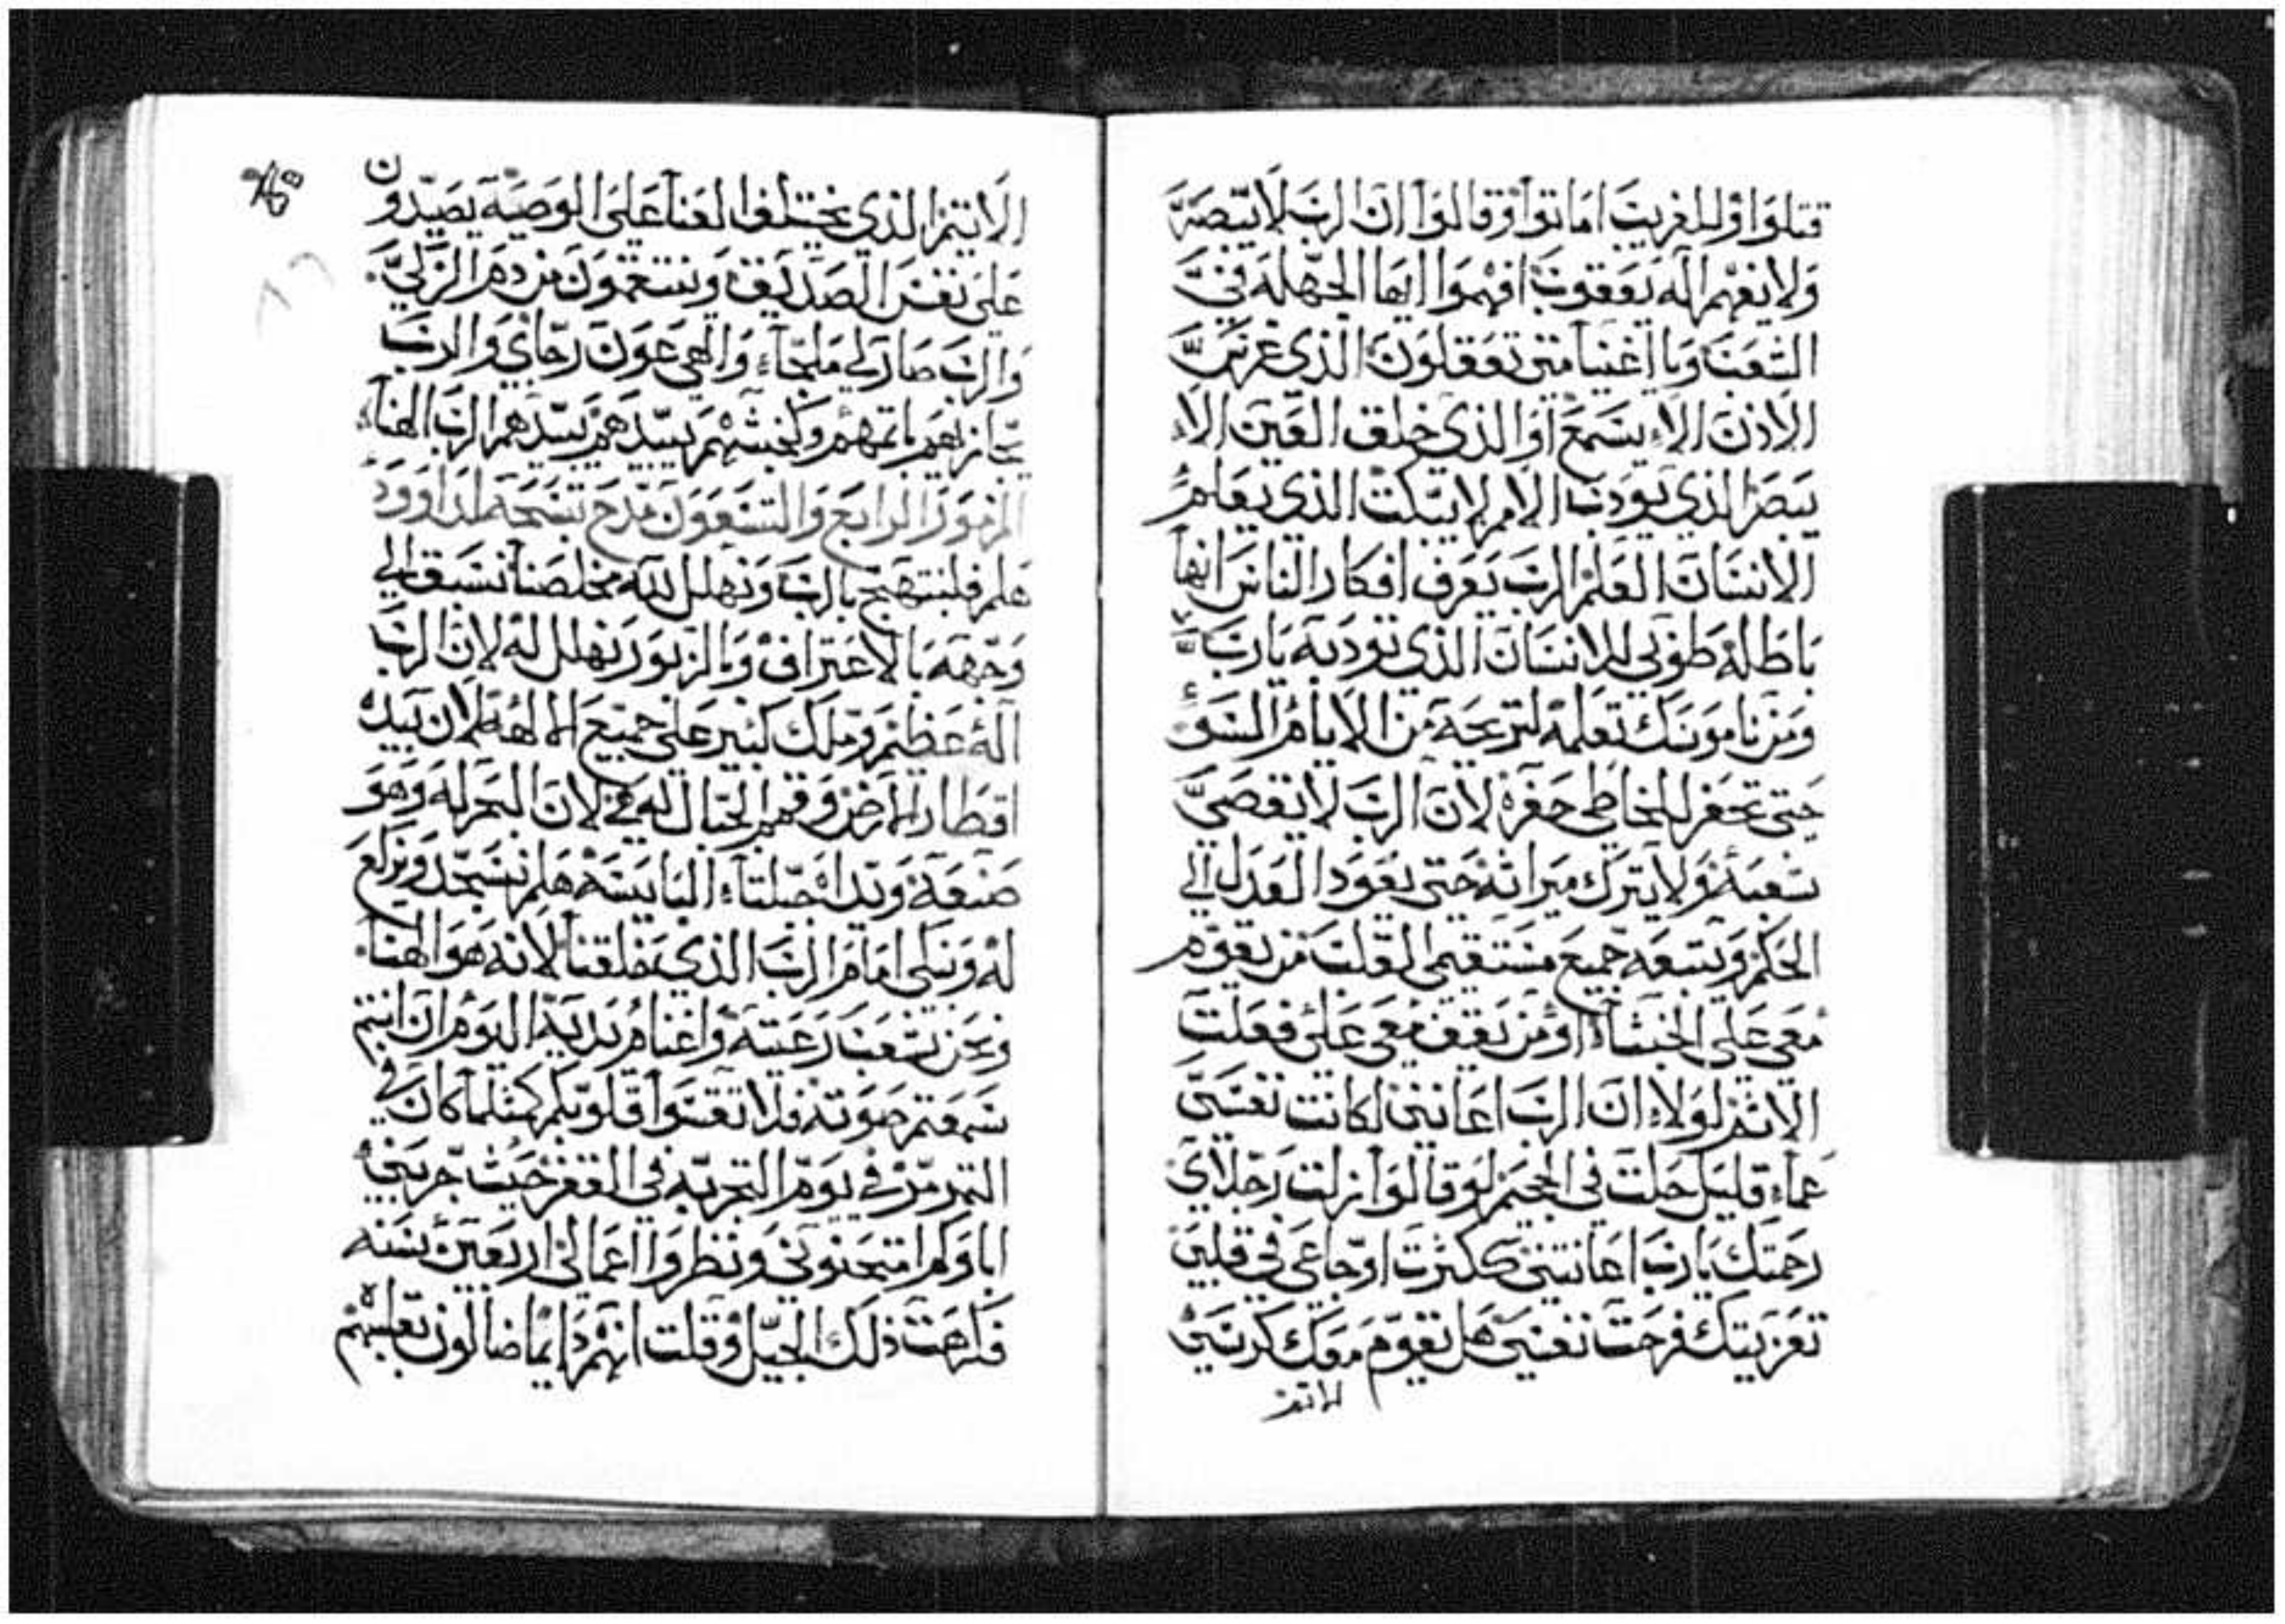 قتلوا وللغريب اماتوا وقالوا ان الرب لا يبصر
ولا يفهم اله يعقوب افهموا ايها الجهله في
الشعب ويا اغنيا متي تعقلون الذي غرس
الاذن الا يسمع او الذي خلق العين الا
يبصر الذي يودب الامم لا يبكت الذي يعلم
الانسان العلم الرب يعرف افكار الناس انها
باطله طوبي للانسان الذي تودبه يارب
ومن ناموسك تعلمه لتريحه من الايام السوء
حتي تحفر للخاطي حفره لان الرب لا يقصي
شعبه ولا يترك ميراثه حتي يعود العدل الي
الحكم ويتبعه جميع مستقيمي القلب من يقوم
معي علي الخبثاء او من يقف معي علي فعلت
الاثم لولا ان الرب اعانني لكانت نفسي
عما قليل حلت في الجحيم لو قالوا زلت رجلاي
رحمتك يارب اعانتني ككثرت اوجاعي في قلبي
تعزيتك فرحت نفسي هل تقوم معك كرسي
الاثم
الاثم الذي يختلقوا العنا علي الوصيه يصيدون
علي نفس الصديق ويستعقون من دم الزكي
والرب صار لي ملجاء والهي عون رجاي والرب
يجازيهم باتمهم وكخبثهم يبيدهم يبيدهم الرب الهنا
المزمور الرابع والتسعون مدح تسبحة لداوود
هلم فلنبتهج بالرب ونهلل لله مخلصنا نسبق الي
وجهه بالاعتراف وبالزبور نهلل له لان الرب
اله عظيم وملك كبير علي جميع الالهه لان بيده
اقطار الارض وقمم الجبال له هي لان البحر له وهو
صنعه ويداه جبلتا اليابسه هلم نسجد ونركع
له ونبكي امام الرب الذي خلقنا لانه هو الهنا
ونحن شعب رعيته واغنام يديه اليوم ان انتم
سمعتم صوته فلا تقسوا قلوبكم كمثلما كان في
التمرمر في يوم التجربه في القفر حيث جربني
اباوكم امتحنوني ونظروا اعمالي اربعين سنه
فكرهت ذلك الجيل وقلت انهم دايما ضالون بقلبهم